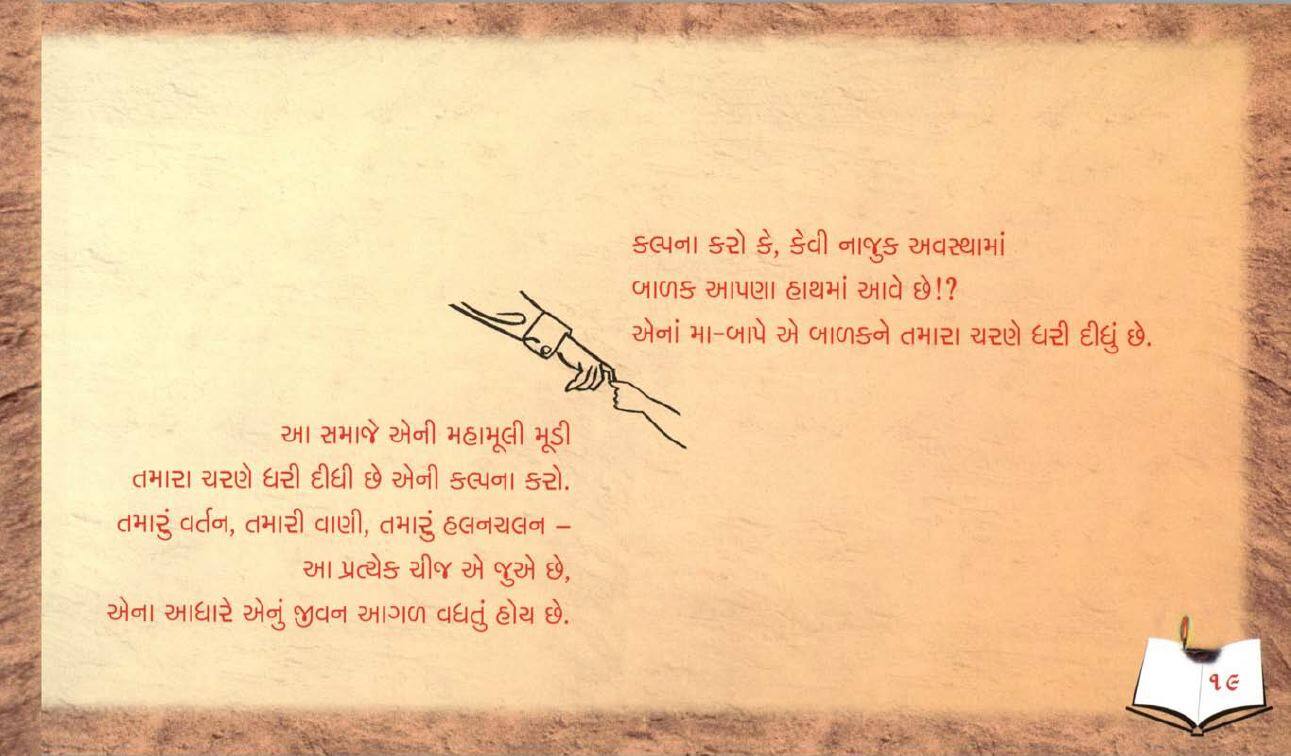 કલ્પના કરો કે, કેવી નાજુક અવસ્થામાં
બાળક આપણા હાથમાં આવે છે!?
એનાં મા-બાપે એ બાળકને તમારા ચરણે ધરી દીધું છે.
આ સમાજે એની મહામૂલી મૂડી
તમારા ચરણે ધરી દીધી છે એની કલ્પના કરો.
તમારું વર્તન, તમારી વાણી, તમારું હલનચલન –
આ પ્રત્યેક ચીજ એ જુએ છે,
એના આધારે એનું જીવન આગળ વધતું હોય છે.
૧૯